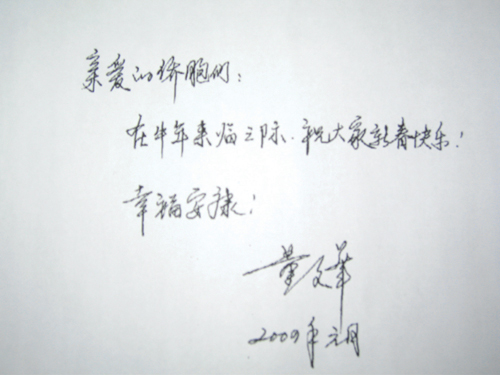 亲爱的侨胞们：
在牛年来临之际，祝大家新春快乐！
幸福安康！
董文华
2009年元月